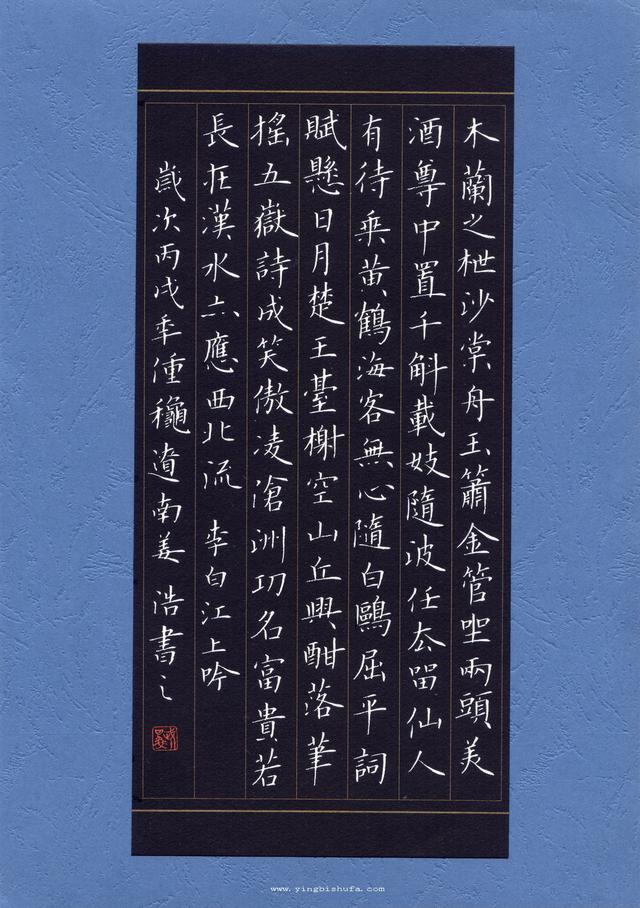 木蘭之枻沙棠舟玉簫金管坐兩頭美
酒尊中置千斛載妓隨波任去留仙人
有待乘黃鶴海客無心隨白鷗屈平詞
賦懸日月楚王臺榭空山丘興酣落筆
搖五嶽詩成笑傲凌滄洲功名富貴若
長在漢水亦應西北流 李白江上吟
歲次丙戌年仲龝 南姜浩書之
www.yingbishufa.com